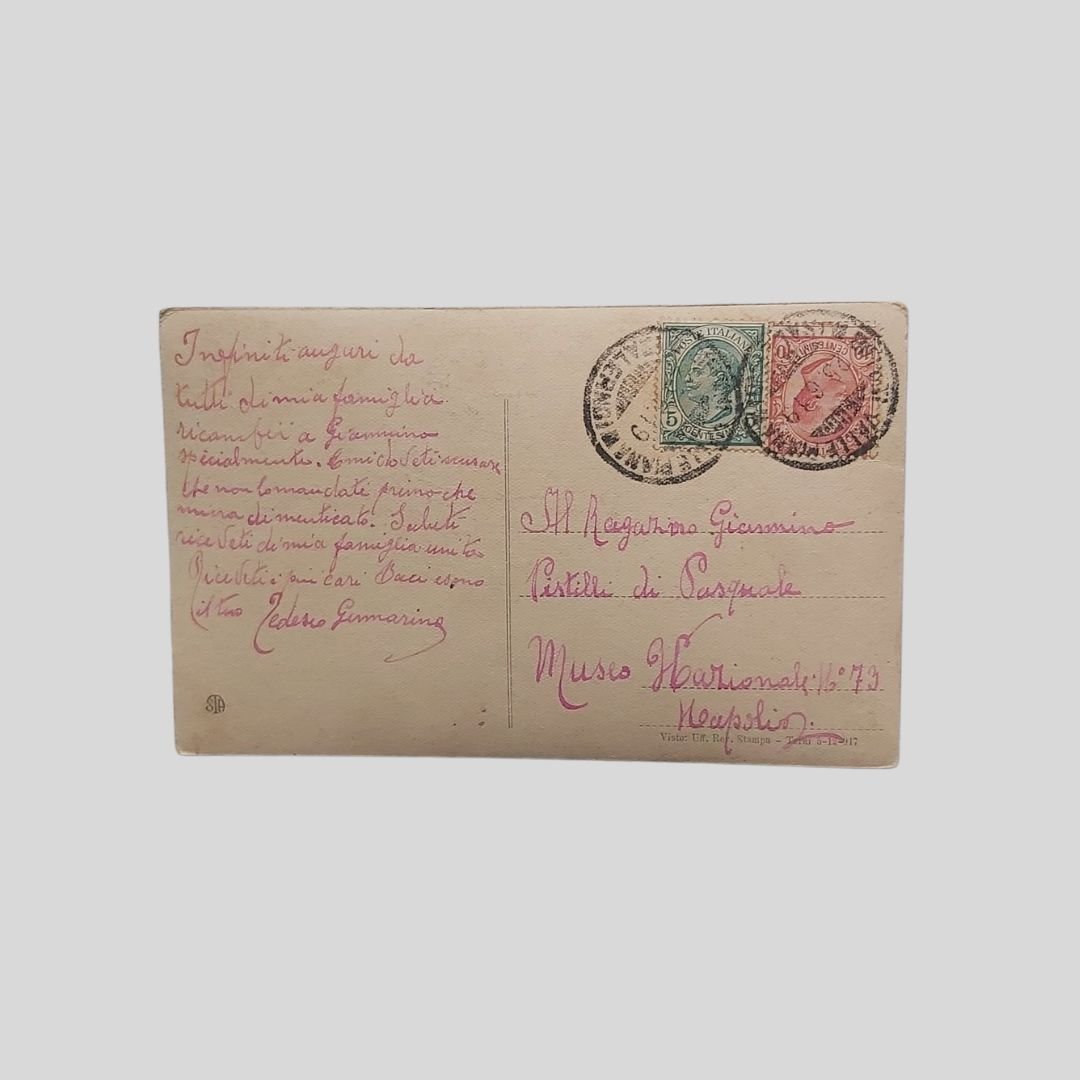 Infiniti auguri da
tutti di mia famiglia
a Giannino
specialmente.
che non lo mandati primo che
dimenticato. Saluti
riceveti di mia famiglia unita
Riceveti i più cari Baci e sono
il tuo Tedesco Gennarino
STA
POSTE ITALIANE
5
CENTESIMI
10
CENTESIMI
Al Ragazino Giannino
Pistilli di Pasquale
Museo Nazionale No 73
Napoli
Visto: Uff. Rev. Stampa - Terni 5-12-917